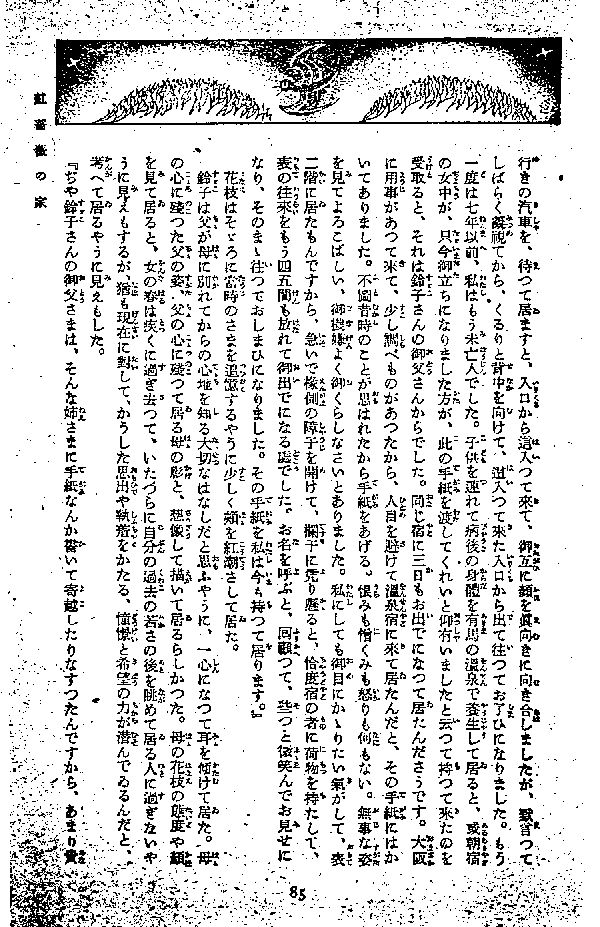 紅薔薇の家
行きの汽車を、待つて居ますと、入口から這入つて來て、御互に顏を眞向きに向き合しましたが、默首つて
しばらく凝視てから、くるりと背中を向けて、這入つて來た入口から出て往つてお了ひになりました。もう
一度は七年以前、私はもう未亡人でした。子供を連れて病後の身體を有馬の溫泉で養生して居ると、或朝宿
の女中が、只今御立ちになりました方が、此の手紙を渡してくれいと仰有いましたと云つて持つて來たのを
受取ると、それは鈴子さんの御父さんからでした。同じ宿に三日もお出でになつて居たんださうです。大阪
に用事があつて來て、少し調べものがあつたから、人目を避けて溫泉宿に來て居たんだと、その手紙にはか
いてありました。不圖昔時のことが思はれたから手紙をあげる。恨みも憎くみも怒りも何もない。無事な姿
を見てよろこばしい、御機嫌よく御くらしなさいとありました。私にしても御目にかゝりたい氣がして、表
二階に居たもんですから、急いで椽側の障子を開けて、欄干に凭り懸ると、恰度宿の者に荷物を持たして、
表の往來をもう四五間も放れて御出でになる處でした。お名を呼ぶと、囘顧つて、些つと微笑んでお見せに
なり、そのまゝ往つておしまひになりました。その手紙を私は今も持つて居ります。』
花枝はそゞろに當時のさまを追憶するやうに少しく頬を紅潮さして居た。
鈴子は父が母に別れてからの心地を知る大切なはなしだと思ふやうに、一心になつて耳を傾けて居た。母
の心に殘つた父の姿、父の心に殘つて居る母の影と、想像して描いて居るらしかつた。母の花枝の態度や顏
を見て居ると、女の春は疾くに過ぎ去つて、いたづらに自分の過去の若さの後を眺めて居る人に過ぎないや
うに見えもするが、猶も現在に對して、かうした思出や執着をかたる、憧憬と希望の力が潜んでゐるんだと、
考へて居るやうに見えもした。
『ぢや鈴子さんの御父さまは、そんな姉さまに手紙なんか書いて寄越したりなすつたんですから、あまり貴
85